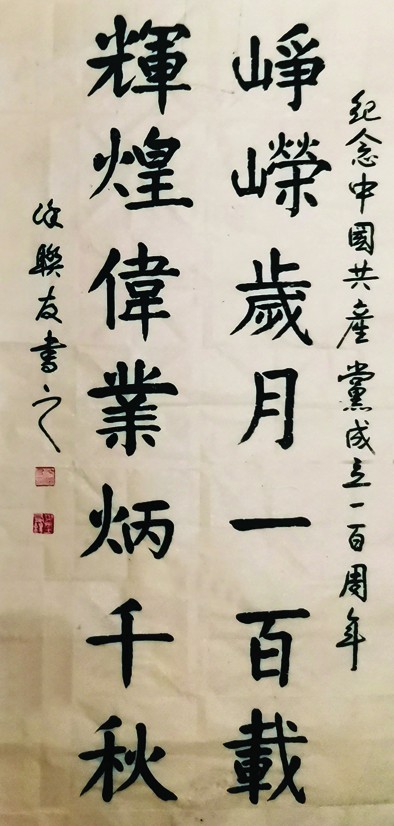 紀念中國共產黨成立一百周年
崢嶸歲月一百載
輝煌偉業炳千秋
徐聯友書之